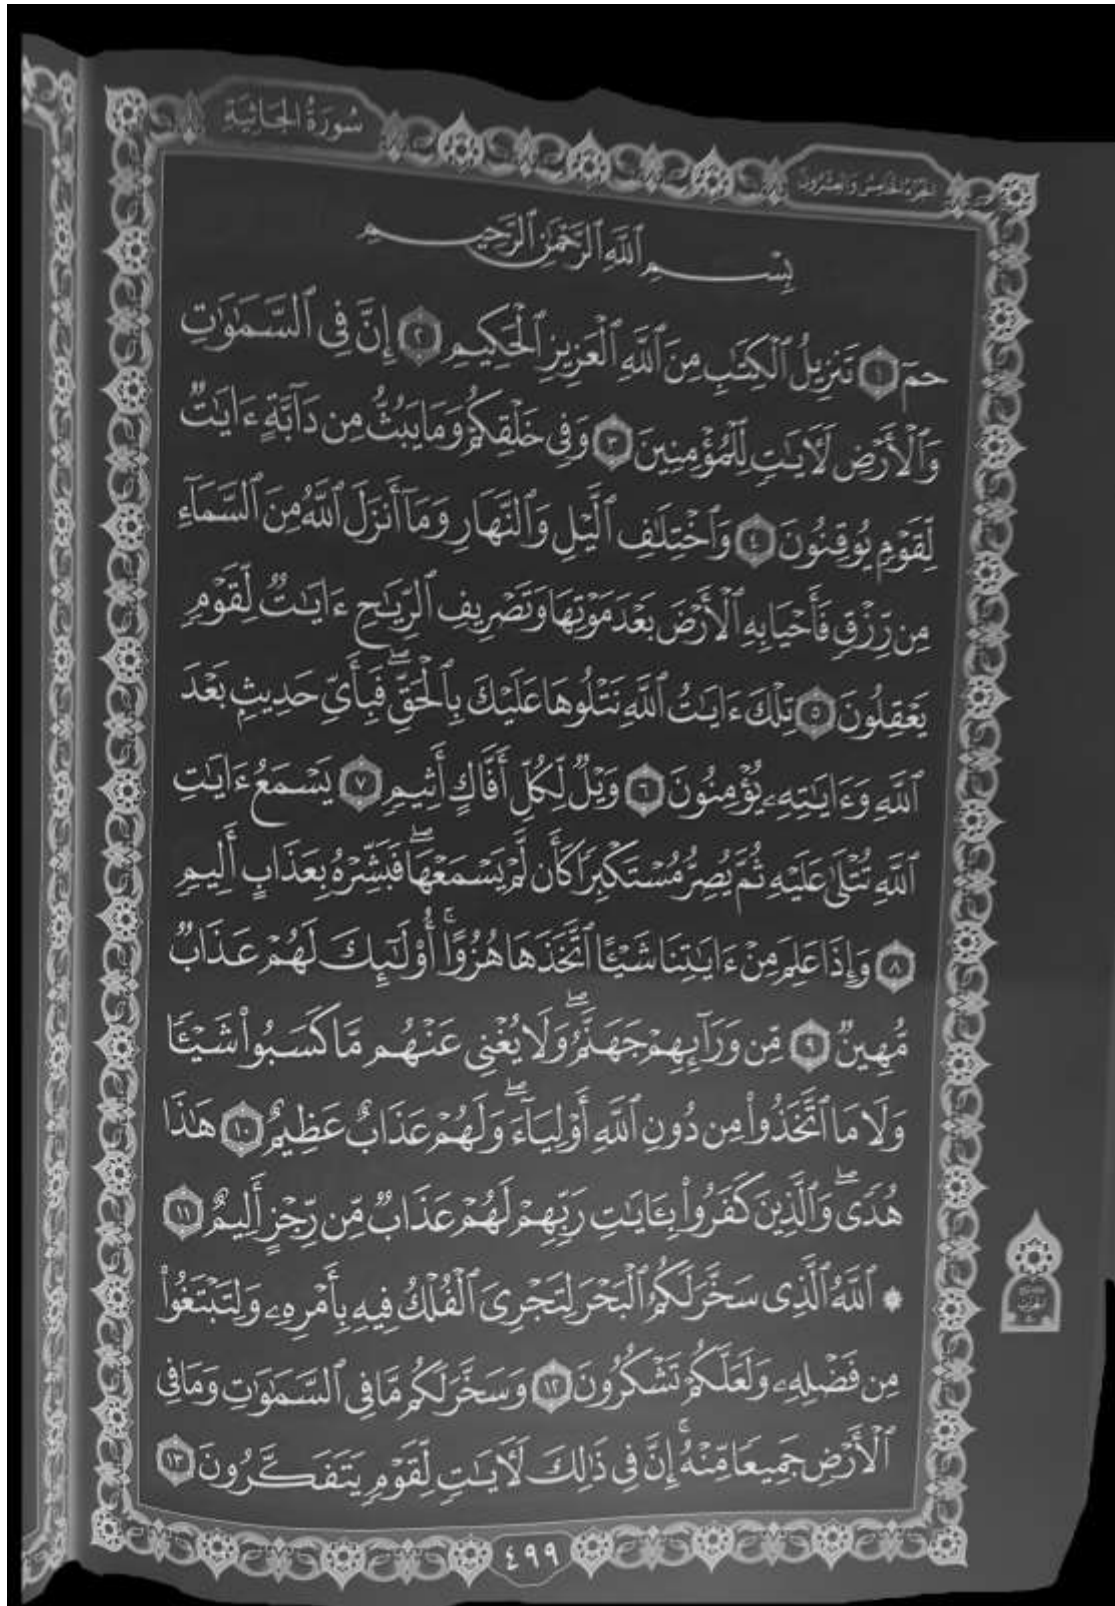 سُورَةُ الجَاثِيَةِ
الجُزْءُ الخَامِسُ وَالعِشْرُونَ
بِسْمِ ٱللَّهِ ٱلرَّحْمَٰنِ ٱلرَّحِيمِ
حمٓ ١ تَنزِيلُ ٱلْكِتَٰبِ مِنَ ٱللَّهِ ٱلْعَزِيزِ ٱلْحَكِيمِ ٢ إِنَّ فِى ٱلسَّمَٰوَٰتِ
وَٱلْأَرْضِ لَءَايَٰتٍ لِّلْمُؤْمِنِينَ ٣ وَفِى خَلْقِكُمْ وَمَا يَبُثُّ مِن دَآبَّةٍ ءَايَٰتٌ
لِّقَوْمٍ يُوقِنُونَ ٤ وَٱخْتِلَٰفِ ٱلَّيْلِ وَٱلنَّهَارِ وَمَآ أَنزَلَ ٱللَّهُ مِنَ ٱلسَّمَآءِ
مِن رِّزْقٍ فَأَحْيَا بِهِ ٱلْأَرْضَ بَعْدَ مَوْتِهَا وَتَصْرِيفِ ٱلرِّيَٰحِ ءَايَٰتٌ لِّقَوْمٍ
يَعْقِلُونَ ٥ تِلْكَ ءَايَٰتُ ٱللَّهِ نَتْلُوهَا عَلَيْكَ بِٱلْحَقِّ ۖ فَبِأَىِّ حَدِيثٍۭ بَعْدَ
ٱللَّهِ وَءَايَٰتِهِۦ يُؤْمِنُونَ ٦ وَيْلٌ لِّكُلِّ أَفَّاكٍ أَثِيمٍ ٧ يَسْمَعُ ءَايَٰتِ
ٱللَّهِ تُتْلَىٰ عَلَيْهِ ثُمَّ يُصِرُّ مُسْتَكْبِرًا كَأَن لَّمْ يَسْمَعْهَا ۖ فَبَشِّرْهُ بِعَذَابٍ أَلِيمٍ
٨ وَإِذَا عَلِمَ مِنْ ءَايَٰتِنَا شَيْـًٔا ٱتَّخَذَهَا هُزُوًا ۚ أُو۟لَٰٓئِكَ لَهُمْ عَذَابٌ
مُّهِينٌ ٩ مِّن وَرَآئِهِمْ جَهَنَّمُ ۖ وَلَا يُغْنِى عَنْهُم مَّا كَسَبُوا۟ شَيْـًٔا
وَلَا مَا ٱتَّخَذُوا۟ مِن دُونِ ٱللَّهِ أَوْلِيَآءَ ۖ وَلَهُمْ عَذَابٌ عَظِيمٌ ١٠ هَٰذَا
هُدًى ۖ وَٱلَّذِينَ كَفَرُوا۟ بِـَٔايَٰتِ رَبِّهِمْ لَهُمْ عَذَابٌ مِّن رِّجْزٍ أَلِيمٌ ١١
۞ ٱللَّهُ ٱلَّذِى سَخَّرَ لَكُمُ ٱلْبَحْرَ لِتَجْرِىَ ٱلْفُلْكُ فِيهِ بِأَمْرِهِۦ وَلِتَبْتَغُوا۟
مِن فَضْلِهِۦ وَلَعَلَّكُمْ تَشْكُرُونَ ١٢ وَسَخَّرَ لَكُم مَّا فِى ٱلسَّمَٰوَٰتِ وَمَا فِى
ٱلْأَرْضِ جَمِيعًا مِّنْهُ ۚ إِنَّ فِى ذَٰلِكَ لَءَايَٰتٍ لِّقَوْمٍ يَتَفَكَّرُونَ ١٣
٤٩٩